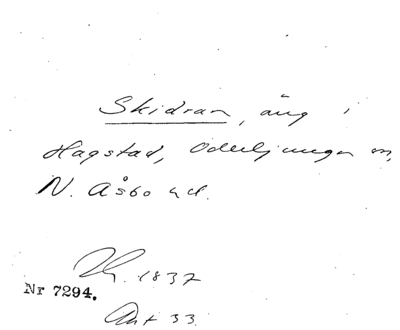 Skidran, äng i
Hagstad, Oderljunga sn,
N. Åsbo hd.
1837
Nr 7294.
Ant 33